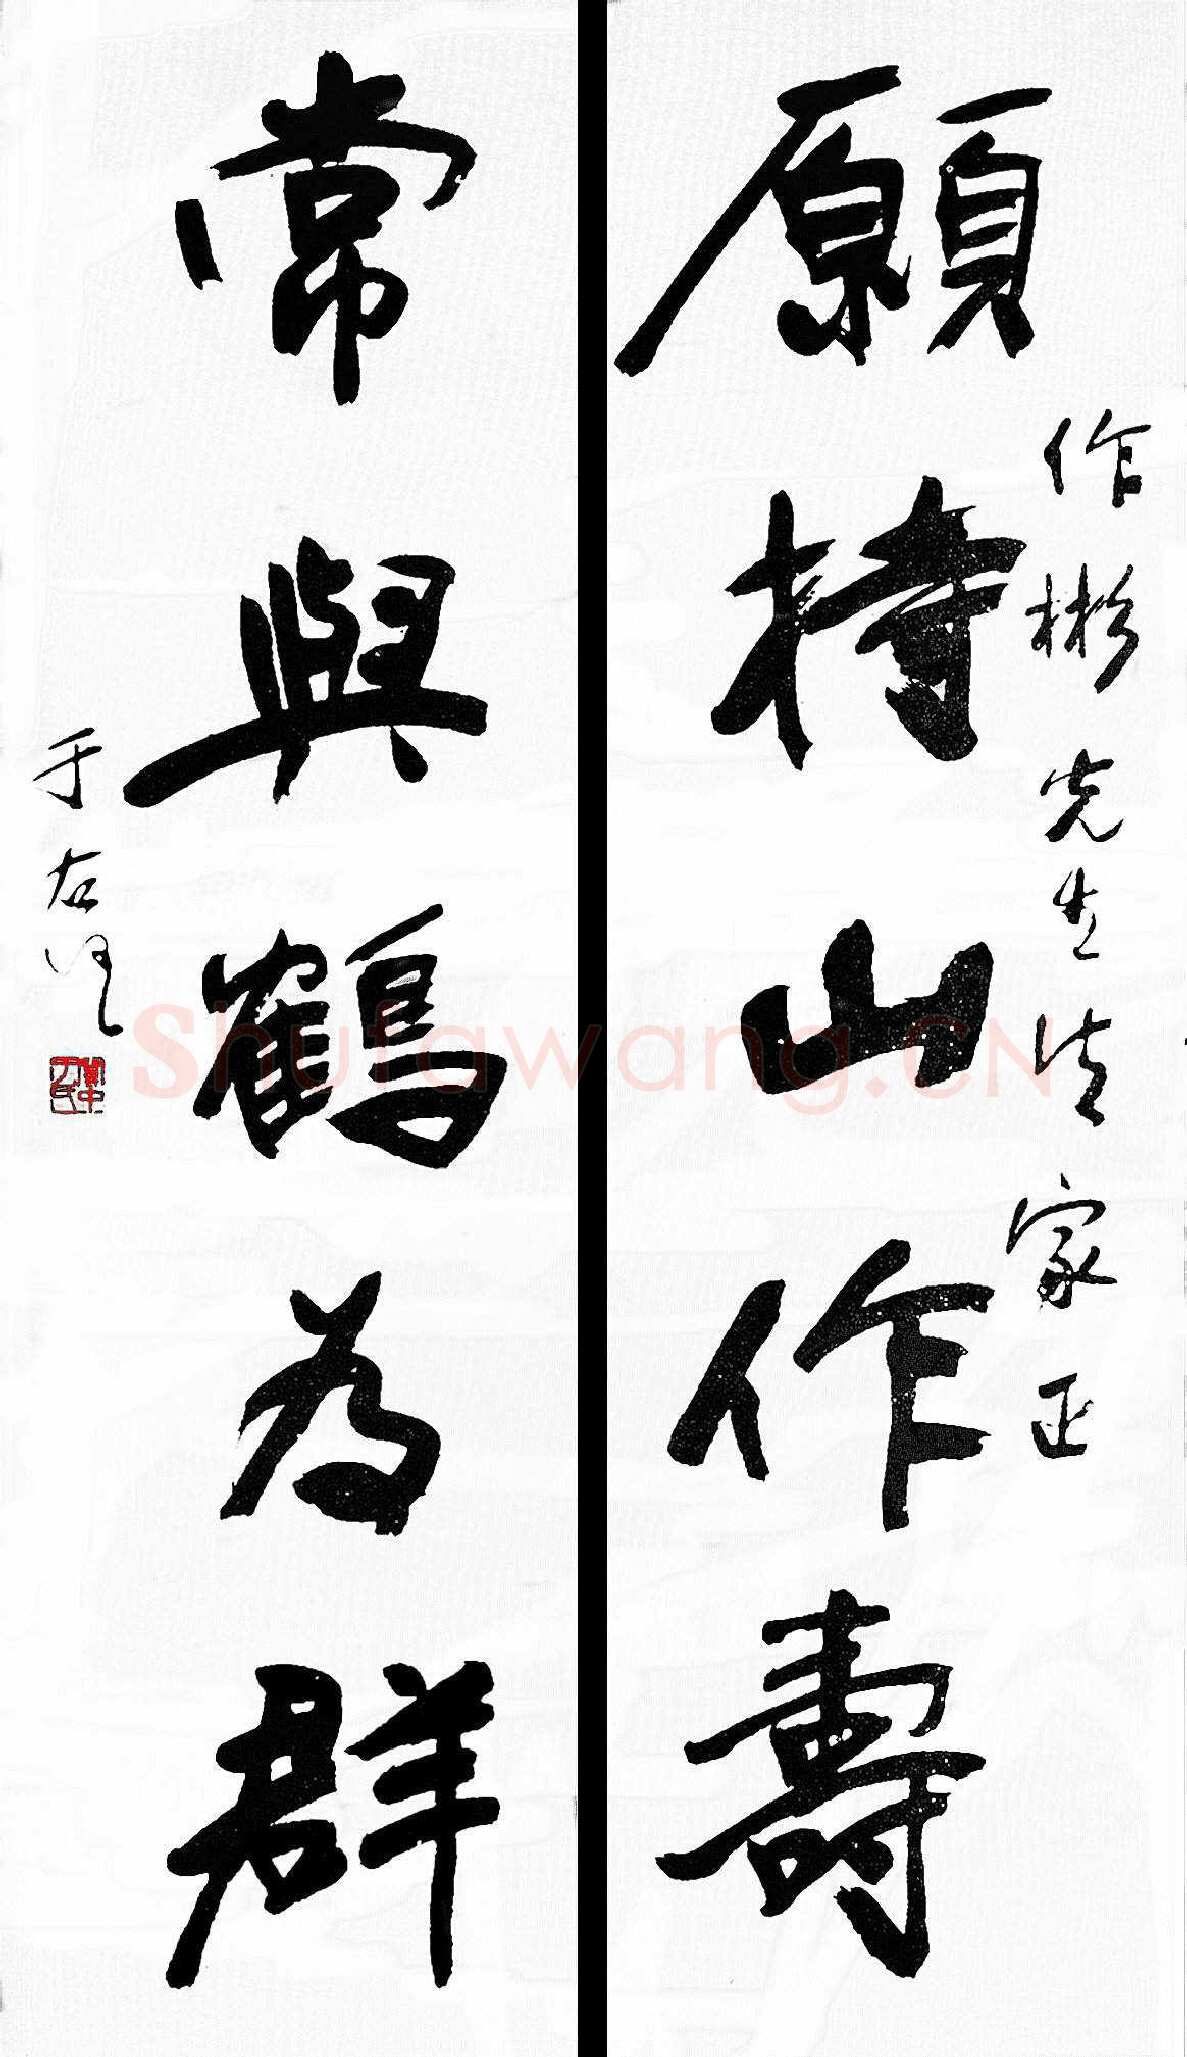 願持山作壽
作彬先生法家正
常與鶴為群
于右任
Shufawang.CN